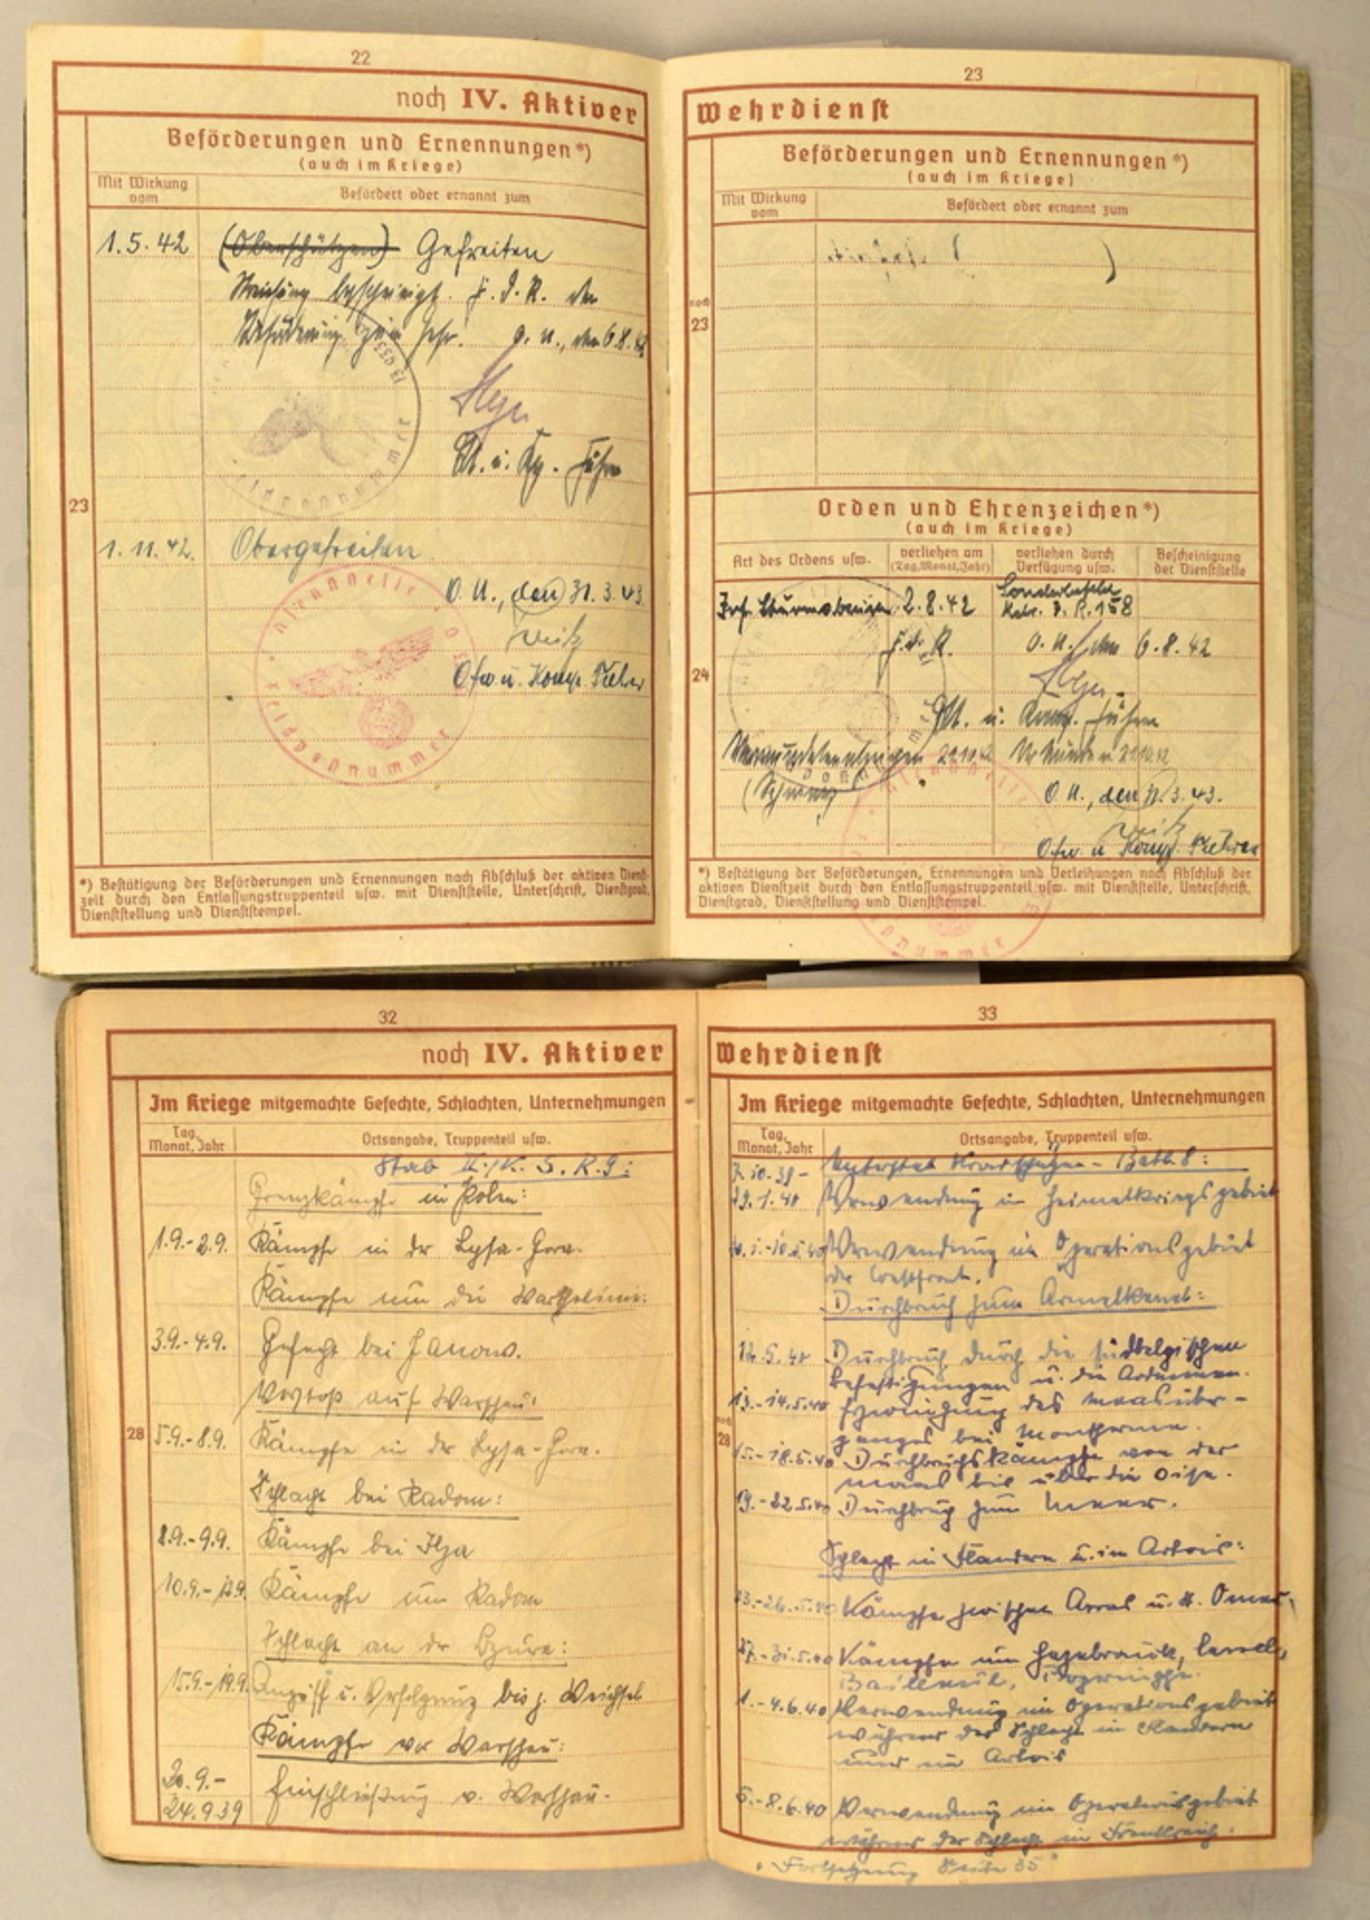 22
noch IV. Aktiver
Beförderungen und Ernennungen*)
(auch im Kriege)
Mit Wirkung vom
Befördert oder ernannt zum
1.5.42 (Oberschützen) Gefreiten
Streichung bescheinigt. F.d.R. der
Beförderung zum Gefr. O.U., den 6.8.42
Lt. u. Kp.-Führer
23
1.11.42. Obergefreiten
O.U., den 31.3.43
Ofw u. Komp. Führer
Dienststelle
Feldpostnummer
*) Bestätigung der Beförderungen und Ernennungen nach Abschluß der aktiven Dienst-
zeit durch den Entlassungstruppenteil usw. mit Dienststelle, Unterschrift, Dienstgrad,
Dienststellung und Dienststempel.
23
Wehrdienst
Beförderungen und Ernennungen*)
(auch im Kriege)
Mit Wirkung vom
Befördert oder ernannt zum
noch
23
Orden und Ehrenzeichen*)
(auch im Kriege)
Art des Ordens usw.
verliehen am
(Tag, Monat, Jahr)
verliehen durch
Verfügung usw.
Bescheinigung
der Dienststelle
Inf. Sturmabzeichen 2.8.42 Sonderbefehl
R. 158
F.d.R. O.U. den 6.8.42
24
Lt. u. Komp. Führer
Verwundetenabzeichen
(Schwarz)
O.U., den 31.3.43.
Ofw. u Komp. Führer
*) Bestätigung der Beförderungen, Ernennungen und Verleihungen nach Abschluß der
aktiven Dienstzeit durch den Entlassungstruppenteil usw. mit Dienststelle, Unterschrift,
Dienstgrad, Dienststellung und Dienststempel.
32
noch IV. Aktiver
Im Kriege mitgemachte Gefechte, Schlachten, Unternehmungen
Tag,
Monat, Jahr
Ortsangabe, Truppenteil usw.
Stab II./K.S.R.9:
Grenzkämpfe in Polen:
1.9.-2.9. Kämpfe in der Lysa-Gora.
Kämpfe um die Warthelinie:
3.9.-4.9. Gefecht bei Janow.
Vorstoß auf Warschau:
28
5.9.-8.9. Kämpfe in der Lysa-Gora.
Schlacht bei Radom:
8.9.-9.9. Kämpfe bei Ilza
10.9.-12.9. Kämpfe um Radom
Schlacht an der Bzura:
15.9.-19.9. Angriff u. Verfolgung bis z. Weichsel
Kämpfe vor Warschau:
20.9.-
24.9.39 Einschließung v. Warschau.
33
Wehrdienst
Im Kriege mitgemachte Gefechte, Schlachten, Unternehmungen
Tag,
Monat, Jahr
Ortsangabe, Truppenteil usw.
Kradschützen-Batl. 8:
7.10.39-
29.1.40 Verwendung im Heimatkriegsgebiet
Verwendung im Operationsgebiet
der Westfront.
Durchbruch zum Armelkanal:
12.5.40 Durchbruch durch die südbelgischen
Befestigungen u. die Ardennen.
13.-14.5.40 Erzwingung des Maasüber-
ganges bei Montherme.
noch
28
15.-18.5.40 Durchbruchskämpfe von der
Maas bis über die Oise.
19.-22.5.40 Durchbruch zum Meer.
Schlacht in Flandern u. im Artois:
23.-26.5.40 Kämpfe zwischen Arras u. St. Omer.
27.-31.5.40 Kämpfe um Hazebrouck, Cassel,
Bailleul, Poperinghe.
1.-4.6.40 Verwendung im Operationsgebiet
während der Schlacht in Flandern
und im Artois
5.-8.6.40 Verwendung im Operationsgebiet
während der Schlacht in Frankreich.
"Fortsetzung Seite 35"